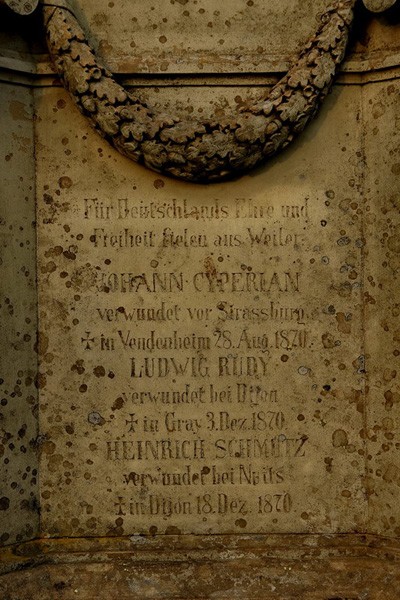 Für Deutschlands Ehre und
Freiheit fielen aus Weiler:
JOHANN CYPERIAN
verwundet vor Strassburg
✝ in Vendenheim 28. Aug. 1870.
LUDWIG RUDY
verwundet bei Dijon
✝ in Gray 3. Dez. 1870.
HEINRICH SCHMUTZ
verwundet bei Nuits
✝ in Dijon 18. Dez. 1870.